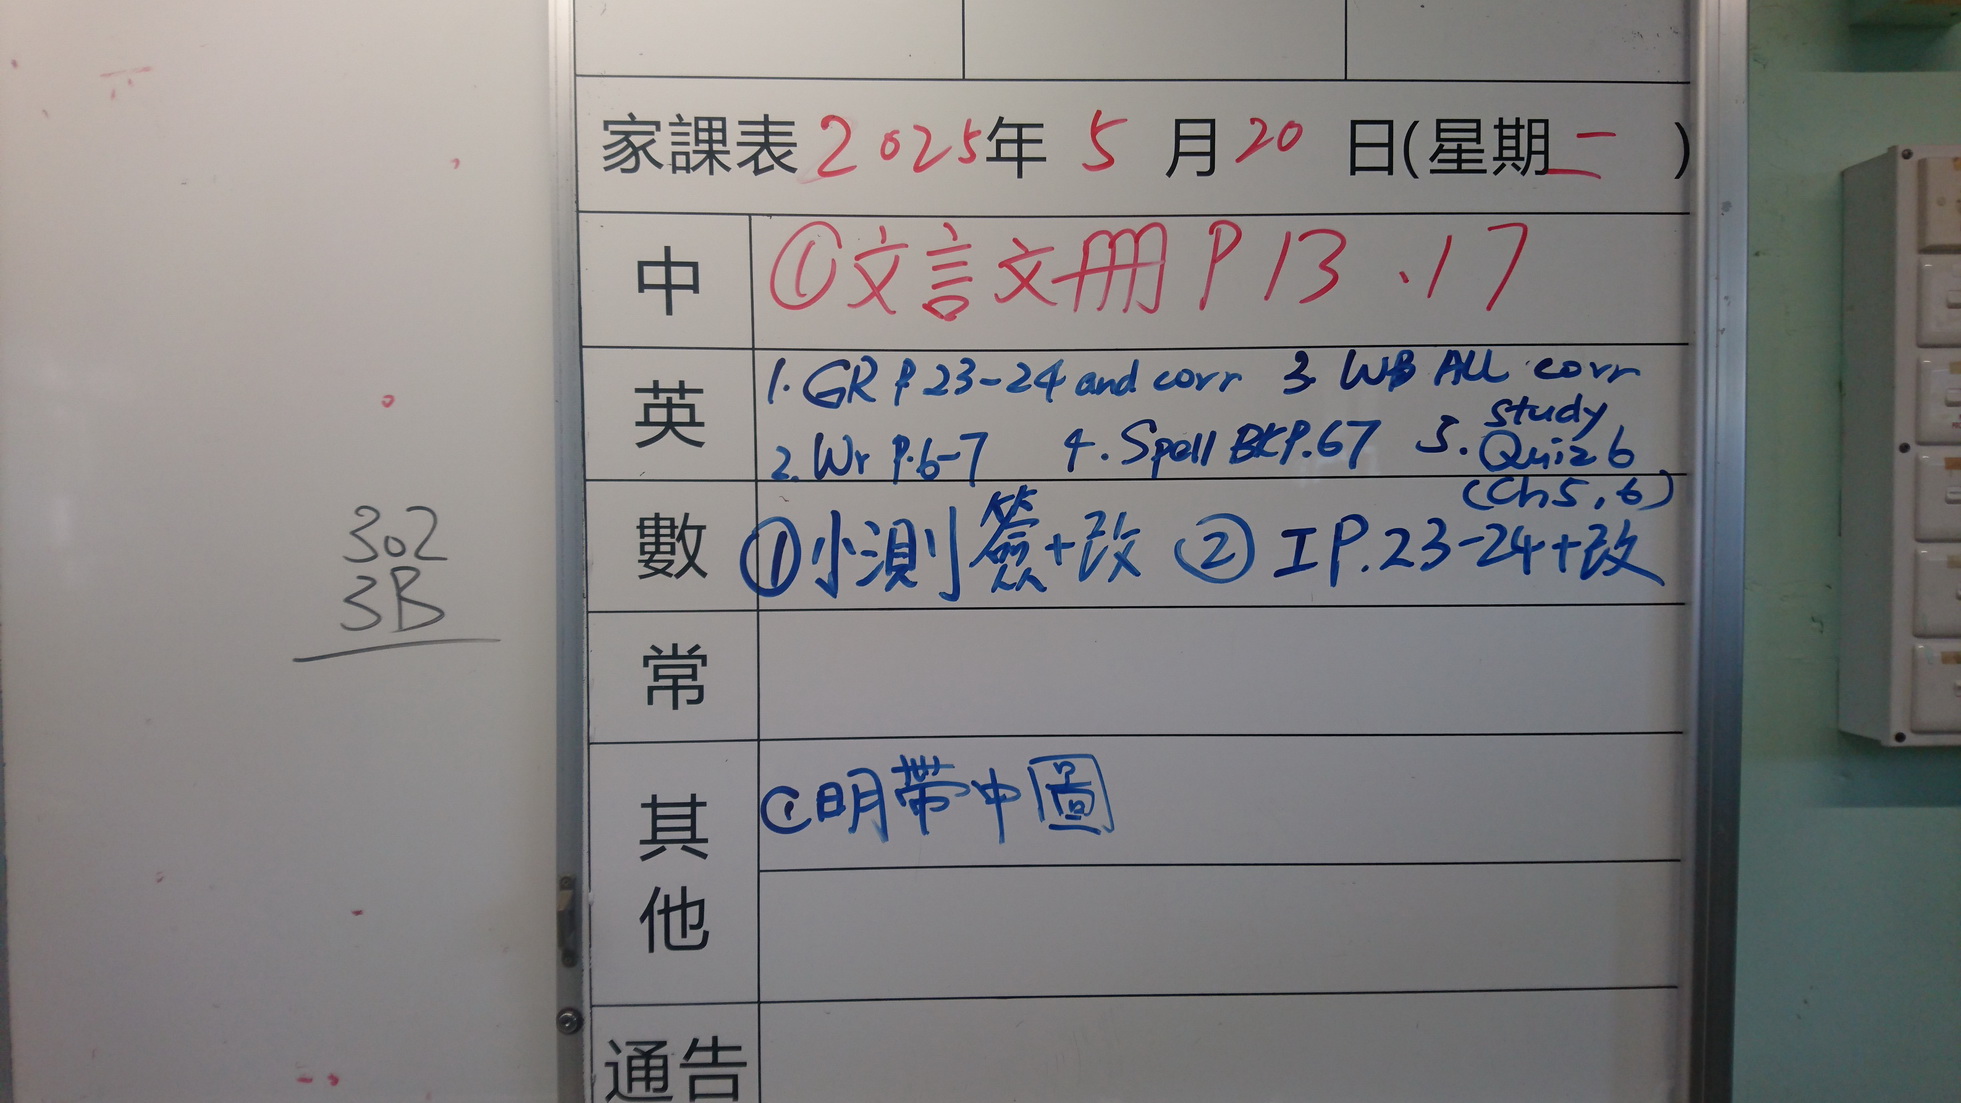 302
3B
家課表 2025年 5 月 20 日(星期二 )
中 ①文言文冊 P 13、17
英 1. GR P 23-24 and corr 3. WB ALL corr
2. Wr P.6-7 4. Spell BK P.67 5. study Quiz 6 (Ch5, 6)
數 ①小測簽+改 ② IP.23-24+改
常
其他 ①明帶中圖
通告